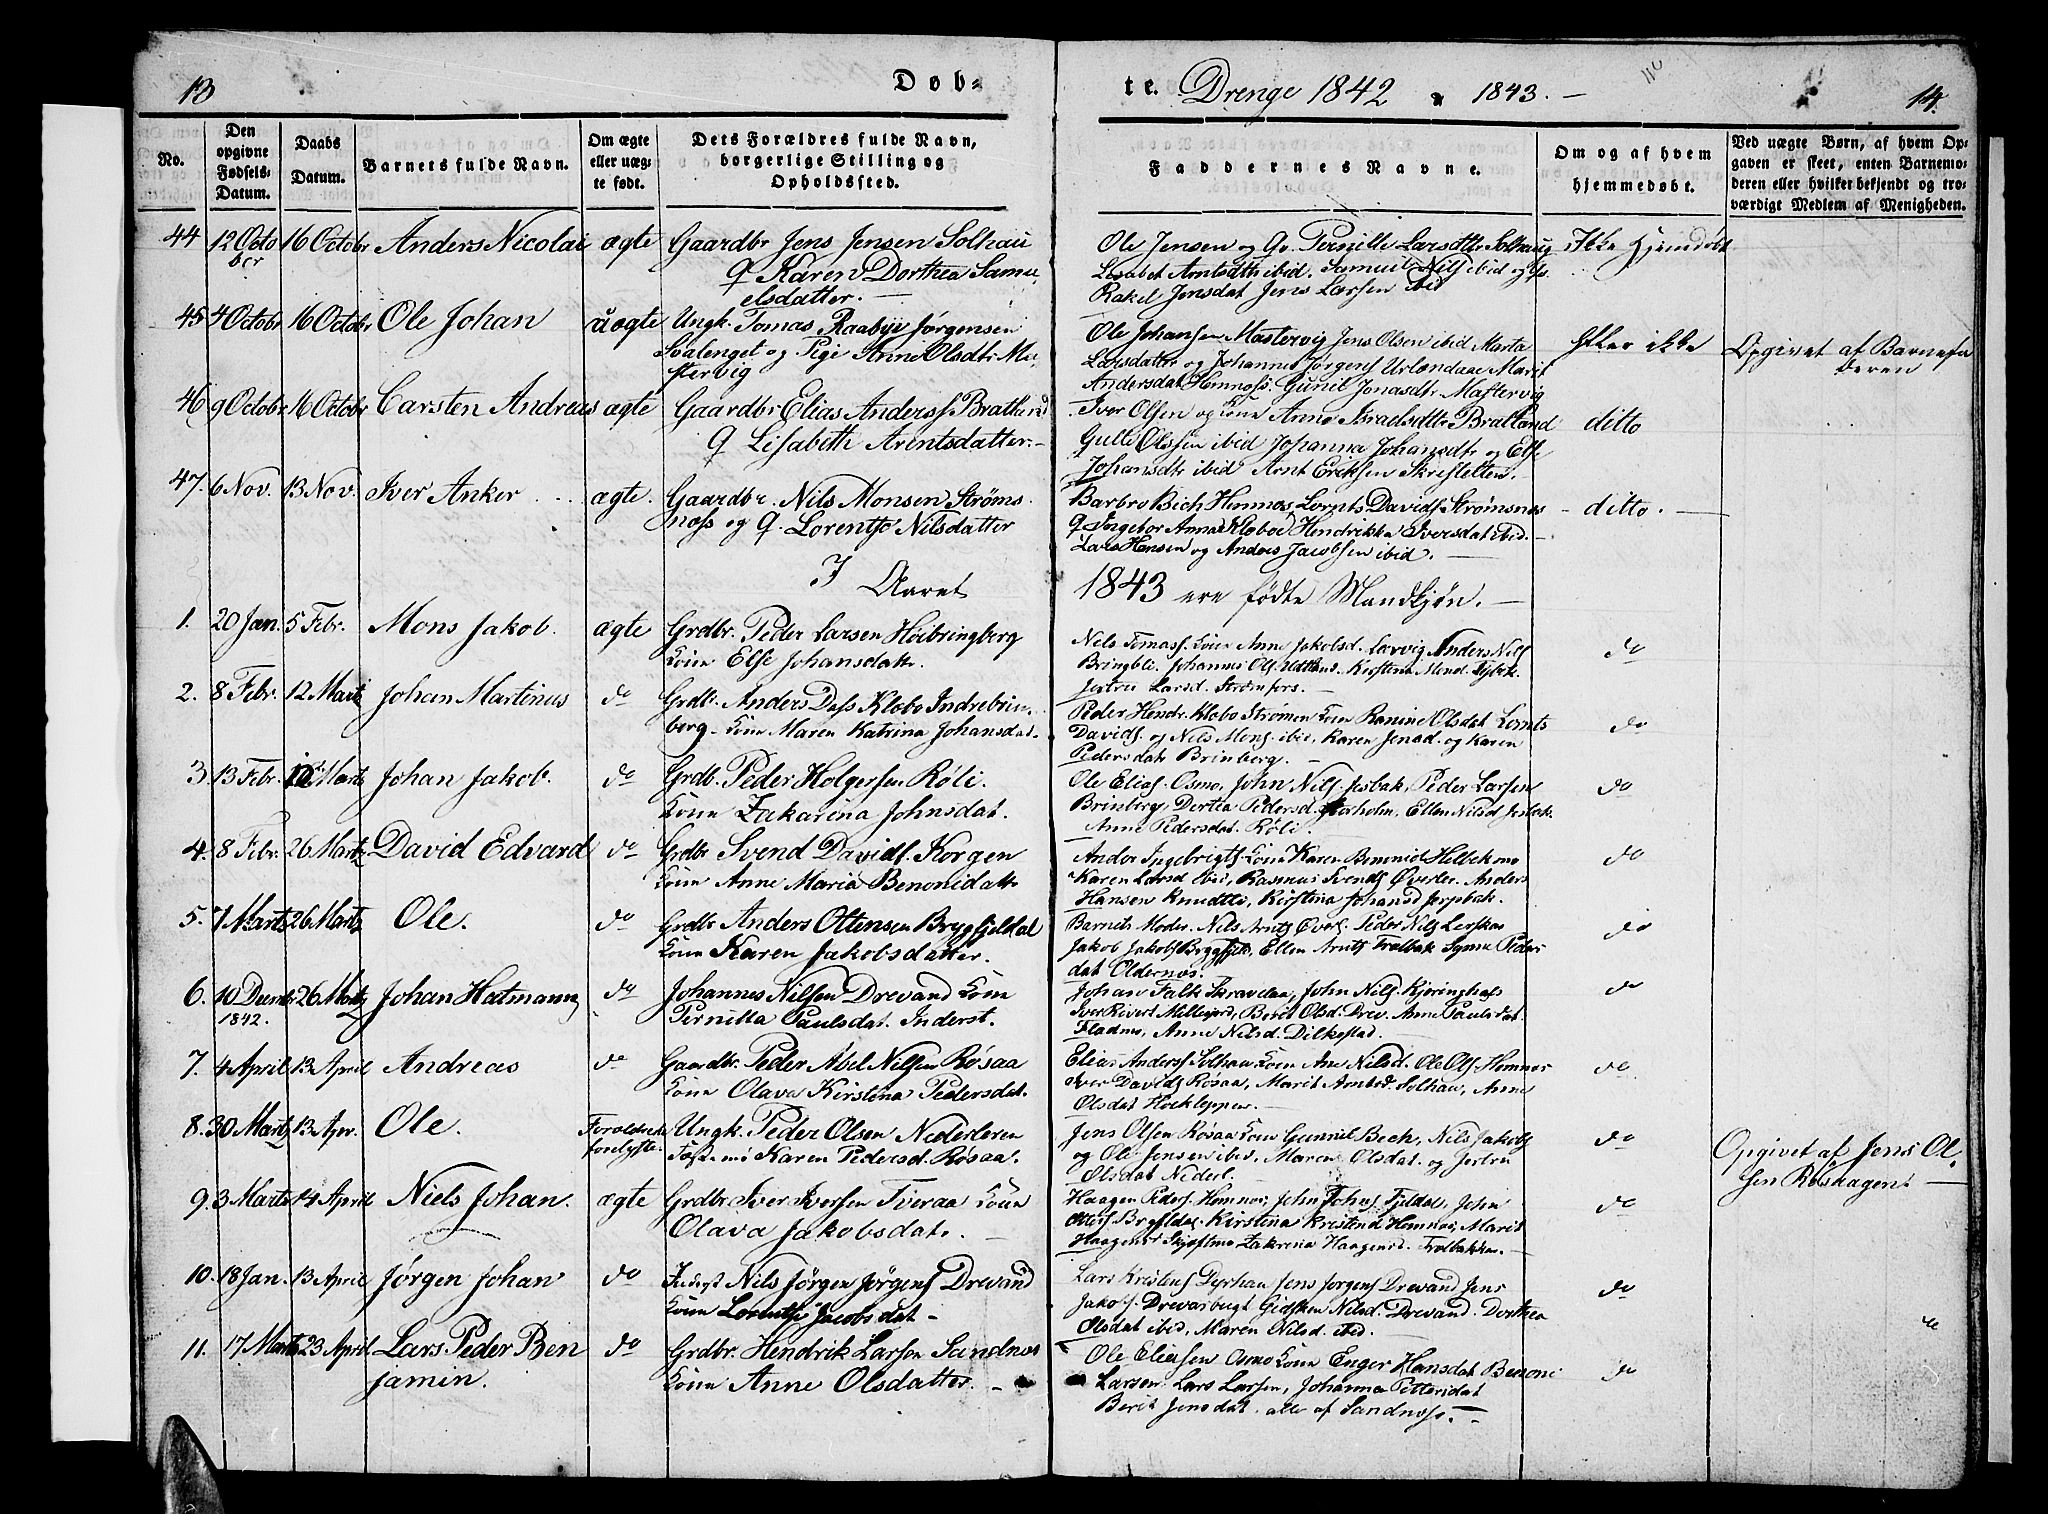 13
Døb-
te. Drenge 1842 & 1843.
14.
No.
Den opgivne Fødsels-Datum.
Daabs Datum.
Barnets fulde Navn.
Om ægte eller uæg-te født.
Dets Forældres fulde Navn, borgerlige Stilling og Opholdssted.
Faddernes Navne.
Om og af hvem hjemmedøbt.
Ved uægte Børn, af hvem Op-gaven er skeet, enten Barnemo-deren eller hvilker bekjendt og tro-værdigt Medlem af Menigheden.
44 12 Octo 16 Octobr Anders Nicolai ægte Gaardbr Jens Jensen Solhau
ber Q Karen Dorthea Samu
elsdatter.
Ole Jensen og Qv. Pernille Larsdtr Solhaug
Lisabet Arntsdtr ibid. Samuel Nils ibid og
Rakel Jensdat Jens Larsen ibid
Ikke Hjemdøbt
45 4 Octobr 16 Octobr Ole Johan uægte Ungk. Tomas Raabye Jørgensen
Svalenget og Pige Anne Olsdtr Ma
stervig
Ole Johansen Mastervig Jens Olsen ibid Marta
Larsdatter og Johannes Jørgens Urlandaae Marit
Andersdat Hemnæss. Gunil Jonasdtr Mastervig
Heller ikke
Opgivet af Barnefa
deren
46 9 Octobr 16 Octobr Carsten Andreas ægte Gaardbr Elias Anderss Bratland
Q Lisabeth Arentsdatter.
Iver Olsen og Kone Anne Israelsdtr Bratland
Gulle Olssen ibid Johanna Johansdtr og Else
Johansdtr ibid Arnt Eriksen Skresletten.
ditto
47. 6 Nov. 13 Nov. Iver Anker ægte. Gaardbr. Nils Monsen Strøms
næss og Q. Lorentse Nilsdatter
Barbro Bech Hemnes Lornts Davids Strømsnes
Q Ingebor Anna Kloboe Hendrikka Iversdat ibid.
Lars Hansen og Anders Jacobsen ibid.
ditto.
I Aaret
1843 ere fødte Mandkjøn.
1. 20 Jan. 5 Febr. Mons Jakob. ægte Grdbr. Peder Larsen Høibringberg
Kone Else Johansdatr.
Nils Tomass. Kone Anne Jakobsd. Lervig Anders Nils
Bringbli. Johannes Ols.
Jertru Larsd. Strømfors.
do
2. 8 Febr. 12 Marts Johan Martinus do Grdbr. Anders Dass Klobo Indrebrin
berg. Kone Maren Katrina Johansdat.
Peder Hendr. Klobo Strømen Kone Ranine Olsdat Lornts
Davids. og Nils Mons. ibid, Karen Jensd. og Karen
Pedersdat Brinberg.
do
3. 13 Febr. 12 Marts Johan Jakob. do Grdb. Peder Holgersen Røli.
Kone Zakarina Johnsdat.
Ole Elias. Osmo, John Nils. Jesbak, Peder Larsen
Brinberg, Dertea Pedersd. Storholm, Ellen Nilsd Jerbak.
Anne Pedersdat. Røli.
do
4. 8 Febr. 26 Marts David Edvard do Grdbr Svend Davids. Korgen
Kone Anne Maria Benonidatr
Ander Ingebrigts. Kone Karen Benonid Helbekmo
Karen Larsd ibid, Rasmus Svends Øverler. Anders
Hansen Knudtli, Kirstina Johansd Jerpbak.
do
5. 7 Marts 26 Marts Ole. do Grdbr Anders Ottensen Bryggfjeldal
Kone Karen Jakobsdatter.
Barnets Moder. Nils Arnts Øverl. Peder Nils Lerskar
Jakob Jakobs Bryggfjeld, Ellen Arnts Frølbak Signe Peder
dat Oldernæs.
do
6. 10 Decmbr 26 Marts Johan Hatmann do Johannes Nilsen Drevand Kone
1842. Pernilla Paulsdat. Inderst.
Johan Falk Skravelaa, John Nils. Kjøringhæs
Iver Rivert Millejord, Berit Olsd. Drev. Anne Paulsdat
Fladmo, Anne Nilsd. Dilkestad.
do
7. 4 April 13 April Andreas do Gaardbr. Peder Abel Nilsen Røsaa
Kone Olava Kirstina Pedersdat.
Elias Anders Solhau Kone Ane Nilsd. Ole Ols Hemnes
Iver Davids Røsaa, Marit Arntsd. Solhau, Anne
Olsdat Høekleppen.
do
8. 30 Marts 13 Apr. Ole. Foreldrene Ungk. Peder Olsen Nederleren
forelofte. Fæstemø Karen Pedersd. Røsaa.
Jens Olsen Røsaa Kone Gunnil Bech, Nils Jakobs
og Ole Jensen ibid, Maren Olsdat. og Jertru
Olsdat Nederl.
do
Opgivet af Jens Ol.
sen Røshagen
9. 3 Marts 14 April Niels Johan. ægte Grdbr Iver Iversen Tveraa Kone
Olava Jakobsdat.
Haagen Peders. Hemnes, John Johns Fjeldal, John
Ottess Brygfjeldal Kirstina Kristens Hemnes, Marit
Haagensd Skjæftmo Zakrena Haagensd. Frølbakken.
do
10. 18 Jan. 13 April Jørgen Johan do Inderst Nils Jørgen Jørgens Drevand
Kone Lorentse Jacobsdat
Lars Kristens Dyrhau Jens Jørgens Drevand Jens
Jakobs. Drevasbugt Gidsken Nilsd. Drevand. Dorthea
Olsdat ibid, Maren Nilsd. ibid.
do
11. 17 Marts 23 April Lars Peder Ben do Grdbr. Hendrik Larsen Sandnes
jamin. Kone Anne Olsdatter.
Ole Eliassen Osmo Kone Enger Hansdat Benoni
Larsen. Lars Larsen, Johanna Pettersdat
Berit Jensdat. alle af Sandnæss.
do